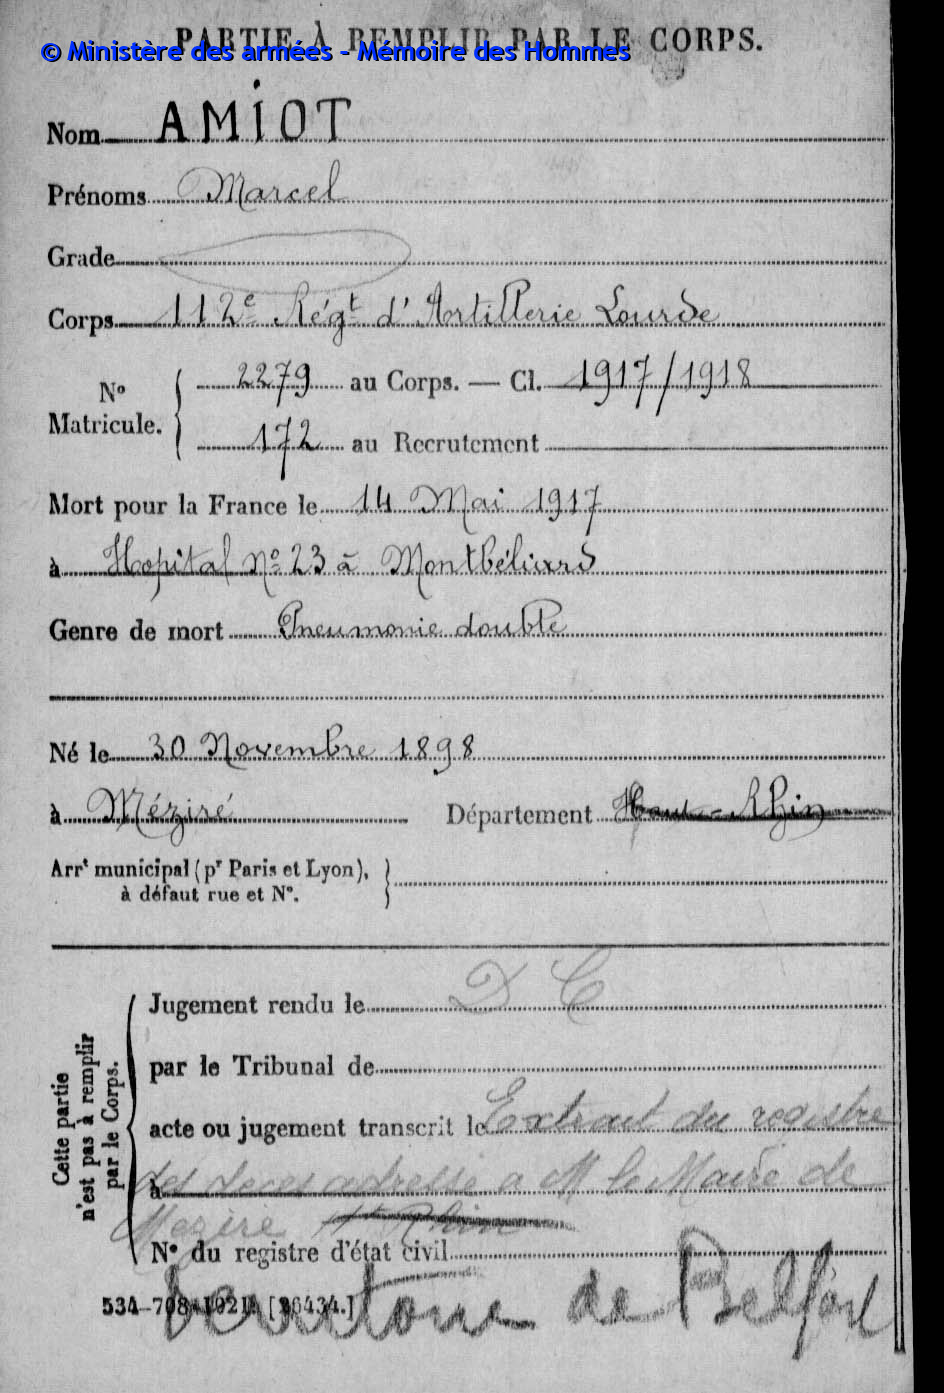 PARTIE À REMPLIR PAR LE CORPS.
© Ministère des armées - Mémoire des Hommes
Nom AMIOT
Prénoms Marcel
Grade
Corps 112e Régt d'Artillerie Lourde
No Matricule. 2279 au Corps. — Cl. 1917/1918
172 au Recrutement
Mort pour la France le 14 Mai 1917
à Hopital No 23 à Montbéliard
Genre de mort Pneumonie double
Né le 30 Novembre 1898
à Méziré Département Haut-Rhin
Arrt municipal (pr Paris et Lyon),
à défaut rue et No.
Cette partie
n'est pas à remplir
par le Corps.
Jugement rendu le D C
par le Tribunal de
acte ou jugement transcrit le Extrait du registre
à des deces adressé a M le Maire de
Mezire Ht Rhin
No du registre d'état civil
534-708-1921. [26434.]
Territoire de Belfort